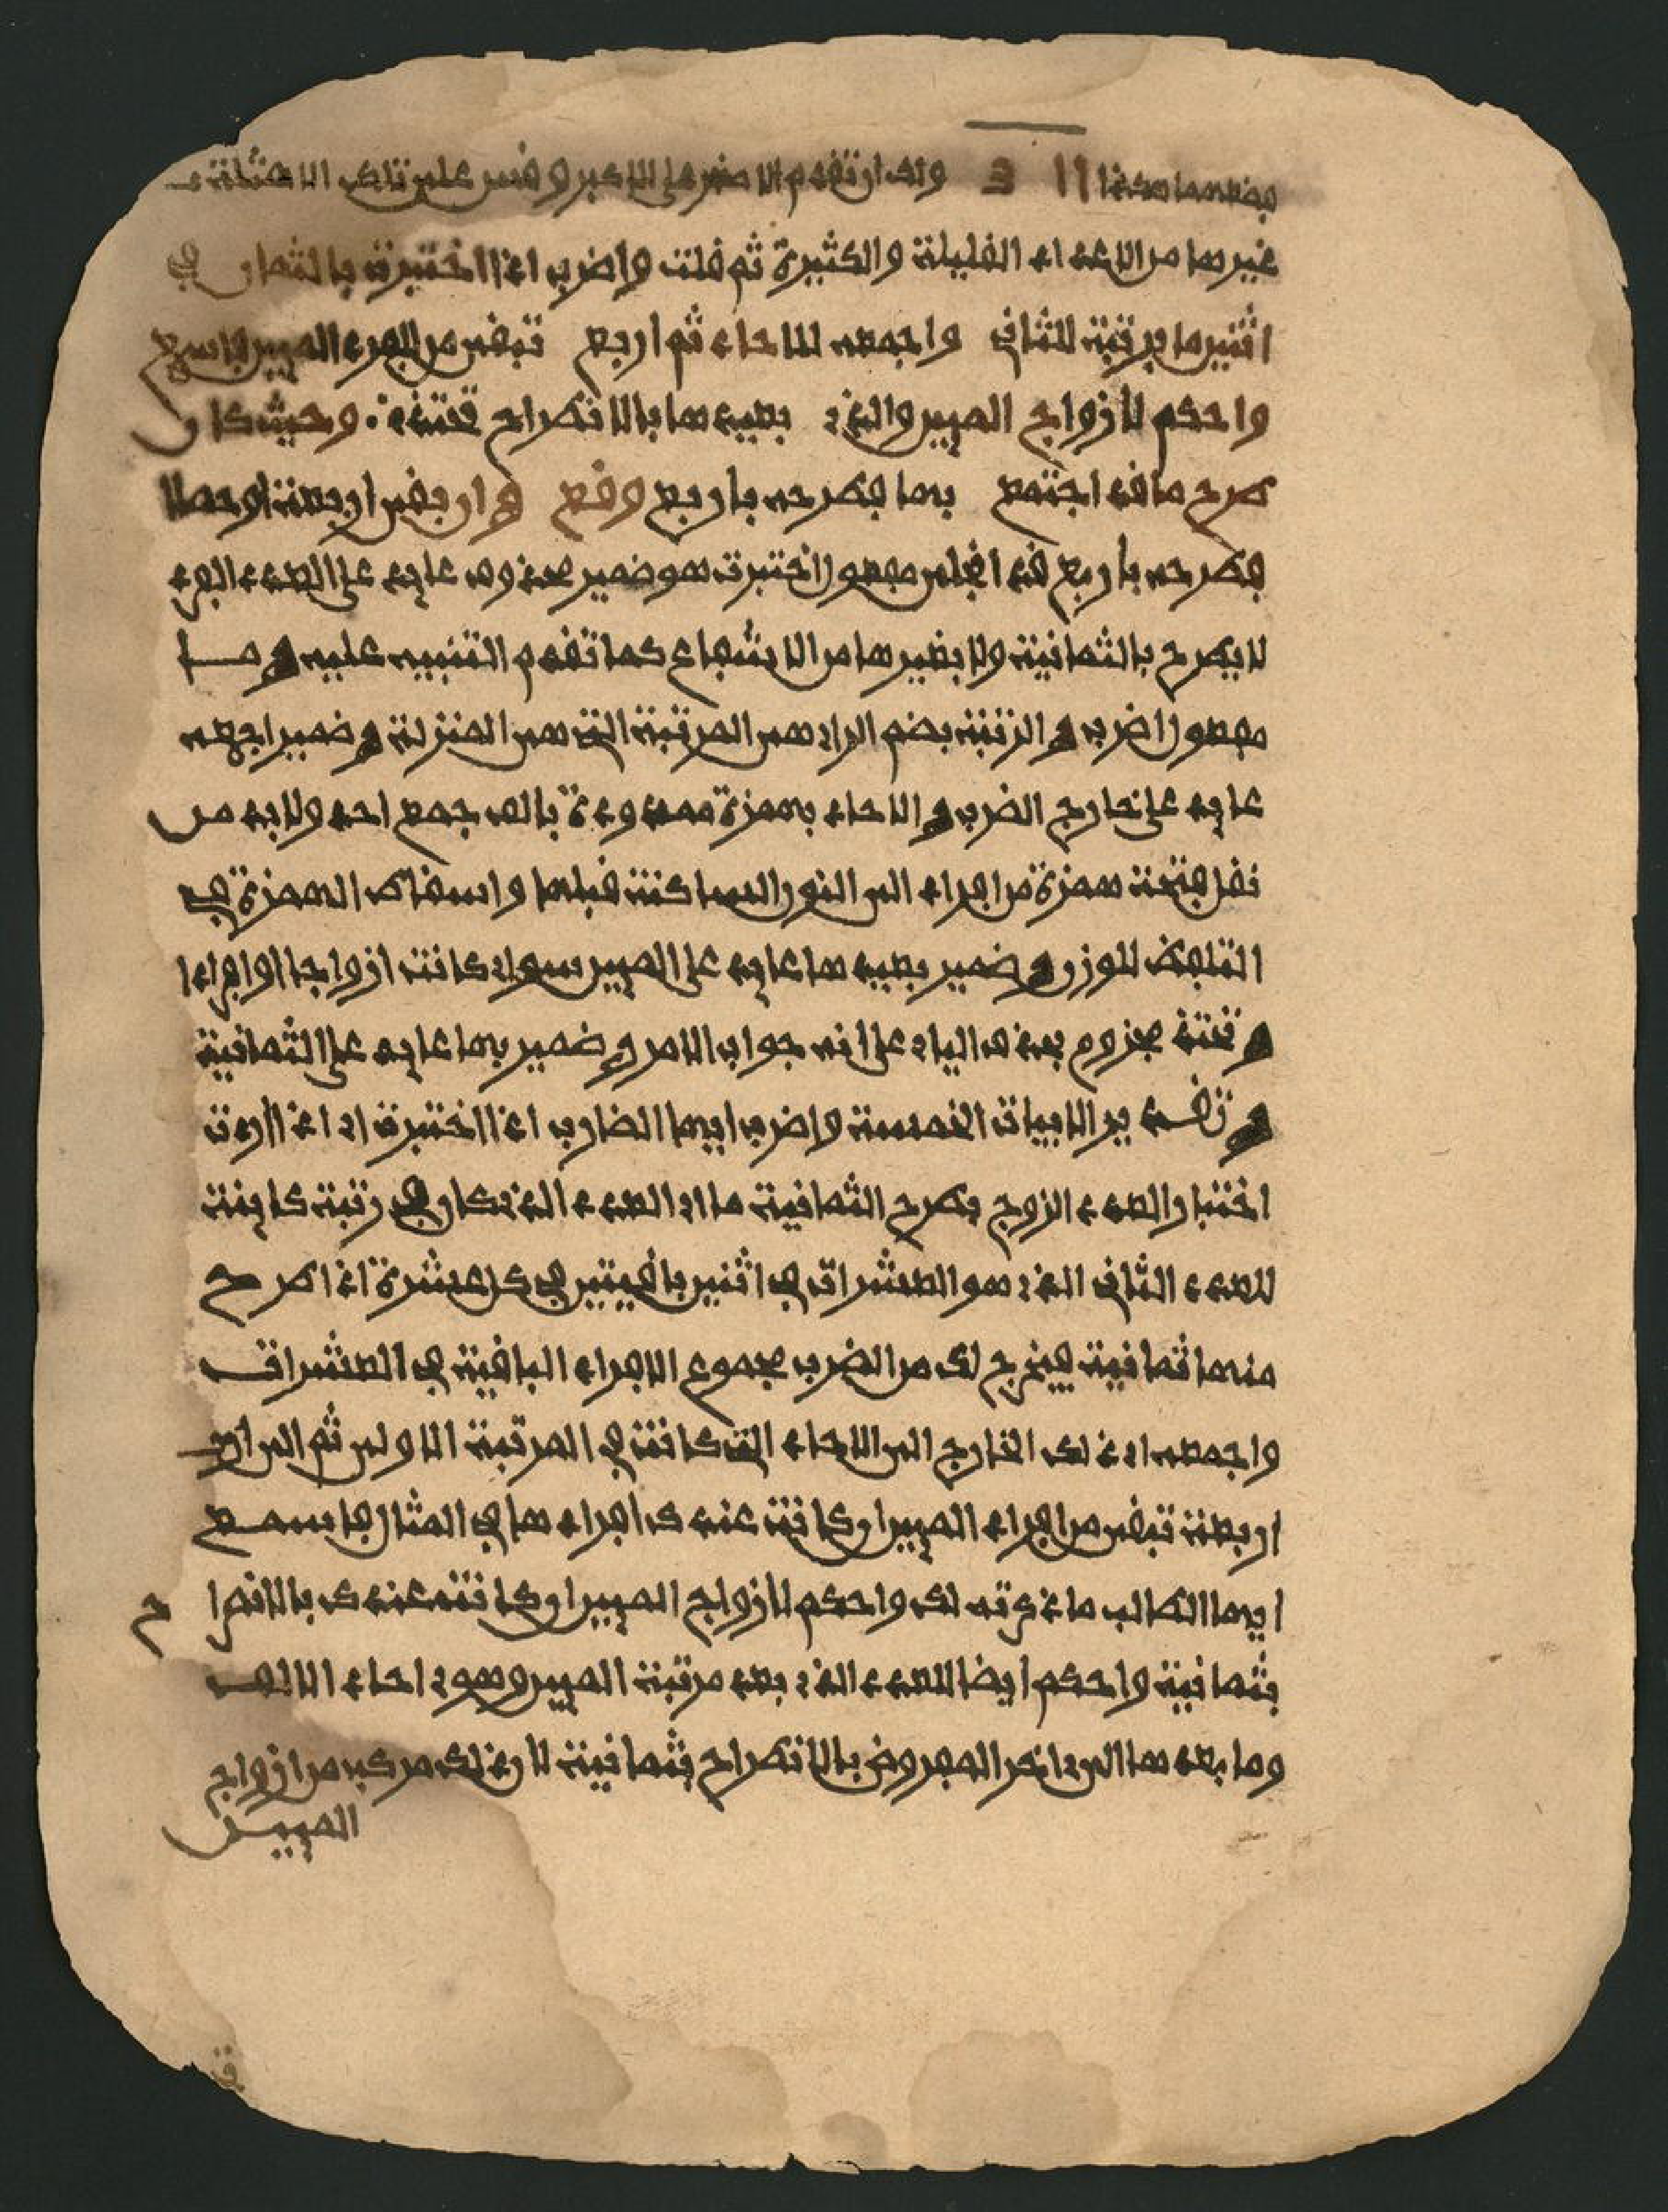 بعضهما هكذا 11 3 ولك ان تقدم الاصغر على الاكبر وقس على تلك الامثلة
غيرها من الاعداد القليلة والكثيرة ثم قلت واضرب اذا اختبرت بالثمان في
اثنين ما برتبة للثاني واجمعه للاحاد ثم اربع تبقى من الفرد المئين فاسمع
واحكم لازواج المئين والذي بعيدها بالانطراح تحتذي وحيث كان
طرح ما قد اجتمع بها فطرحه باربع وقع وان بقى اربعة او حطا
فطرحه باربع قد انجلى مفعول اختبرت هو ضمير محذوف عايد على العدد الفرد
لا يطرح بالثمانية ولا بغيرها من الاشفاع كما تقدم التنبيه عليه وما
مفعول اضرب والرتبة بضم الراء هى المرتبة التى هى المنزلة وضمير اجمعه
عايد على خارج الضرب والاحاد بهمزة ممدودة بالف جمع احد ولابد من
نقل فتحة همزة من افراد الى النون الساكنة قبلها واسقاط الهمزة في
التلفظ للوزن وضمير بعيدها عايد على المئين سواء كانت ازواجا او افرادا
وتحتذ مجزوم بحذف الياء على انه جواب الامر وضمير بها عايد على الثمانية
وتقدير الابيات الخمسة واضرب ايها الضارب اذا اختبرت اى اذا اردت
اختبار العدد الزوج بطرح الثمانية ما اى العدد الذي كان في رتبة كاينة
للعدد الثاني الذي هو العشرات في اثنين باقيتين في كل عشرة اذا طرح
منها ثمانية فيخرج لك من الضرب مجموع الافراد الباقية في العشرات
واجمعه اى ذلك الخارج الى الاحاد التى كانت في المرتبة الاولى ثم الى
اربعة تبقى من افراد المئين ان كانت عندك افرادها في المثال فاسمع
ايها الطالب ما ذكرته لك واحكم لازواج المئين ان كانت عندك بالانطراح
بثمانية واحكم ايضا للعدد الذي بعد مرتبة المئين وهو احاد الالف
وما بعدها الى اخر المفروض بالانطراح بثمانية لان ذلك مركب من ازواج
المئين